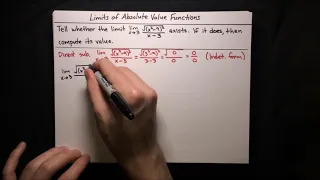 Limits of Absolute Value Functions
Tell whether the limit lim x→3 √(x²-9)² / x-3 exists. If it does, then
compute its value.
Direct sub. lim x→3 √(x²-9)² / x-3 = √(3²-9)² / 3-3 = √0 / 0 = 0/0 (Indet. form)
lim x→3